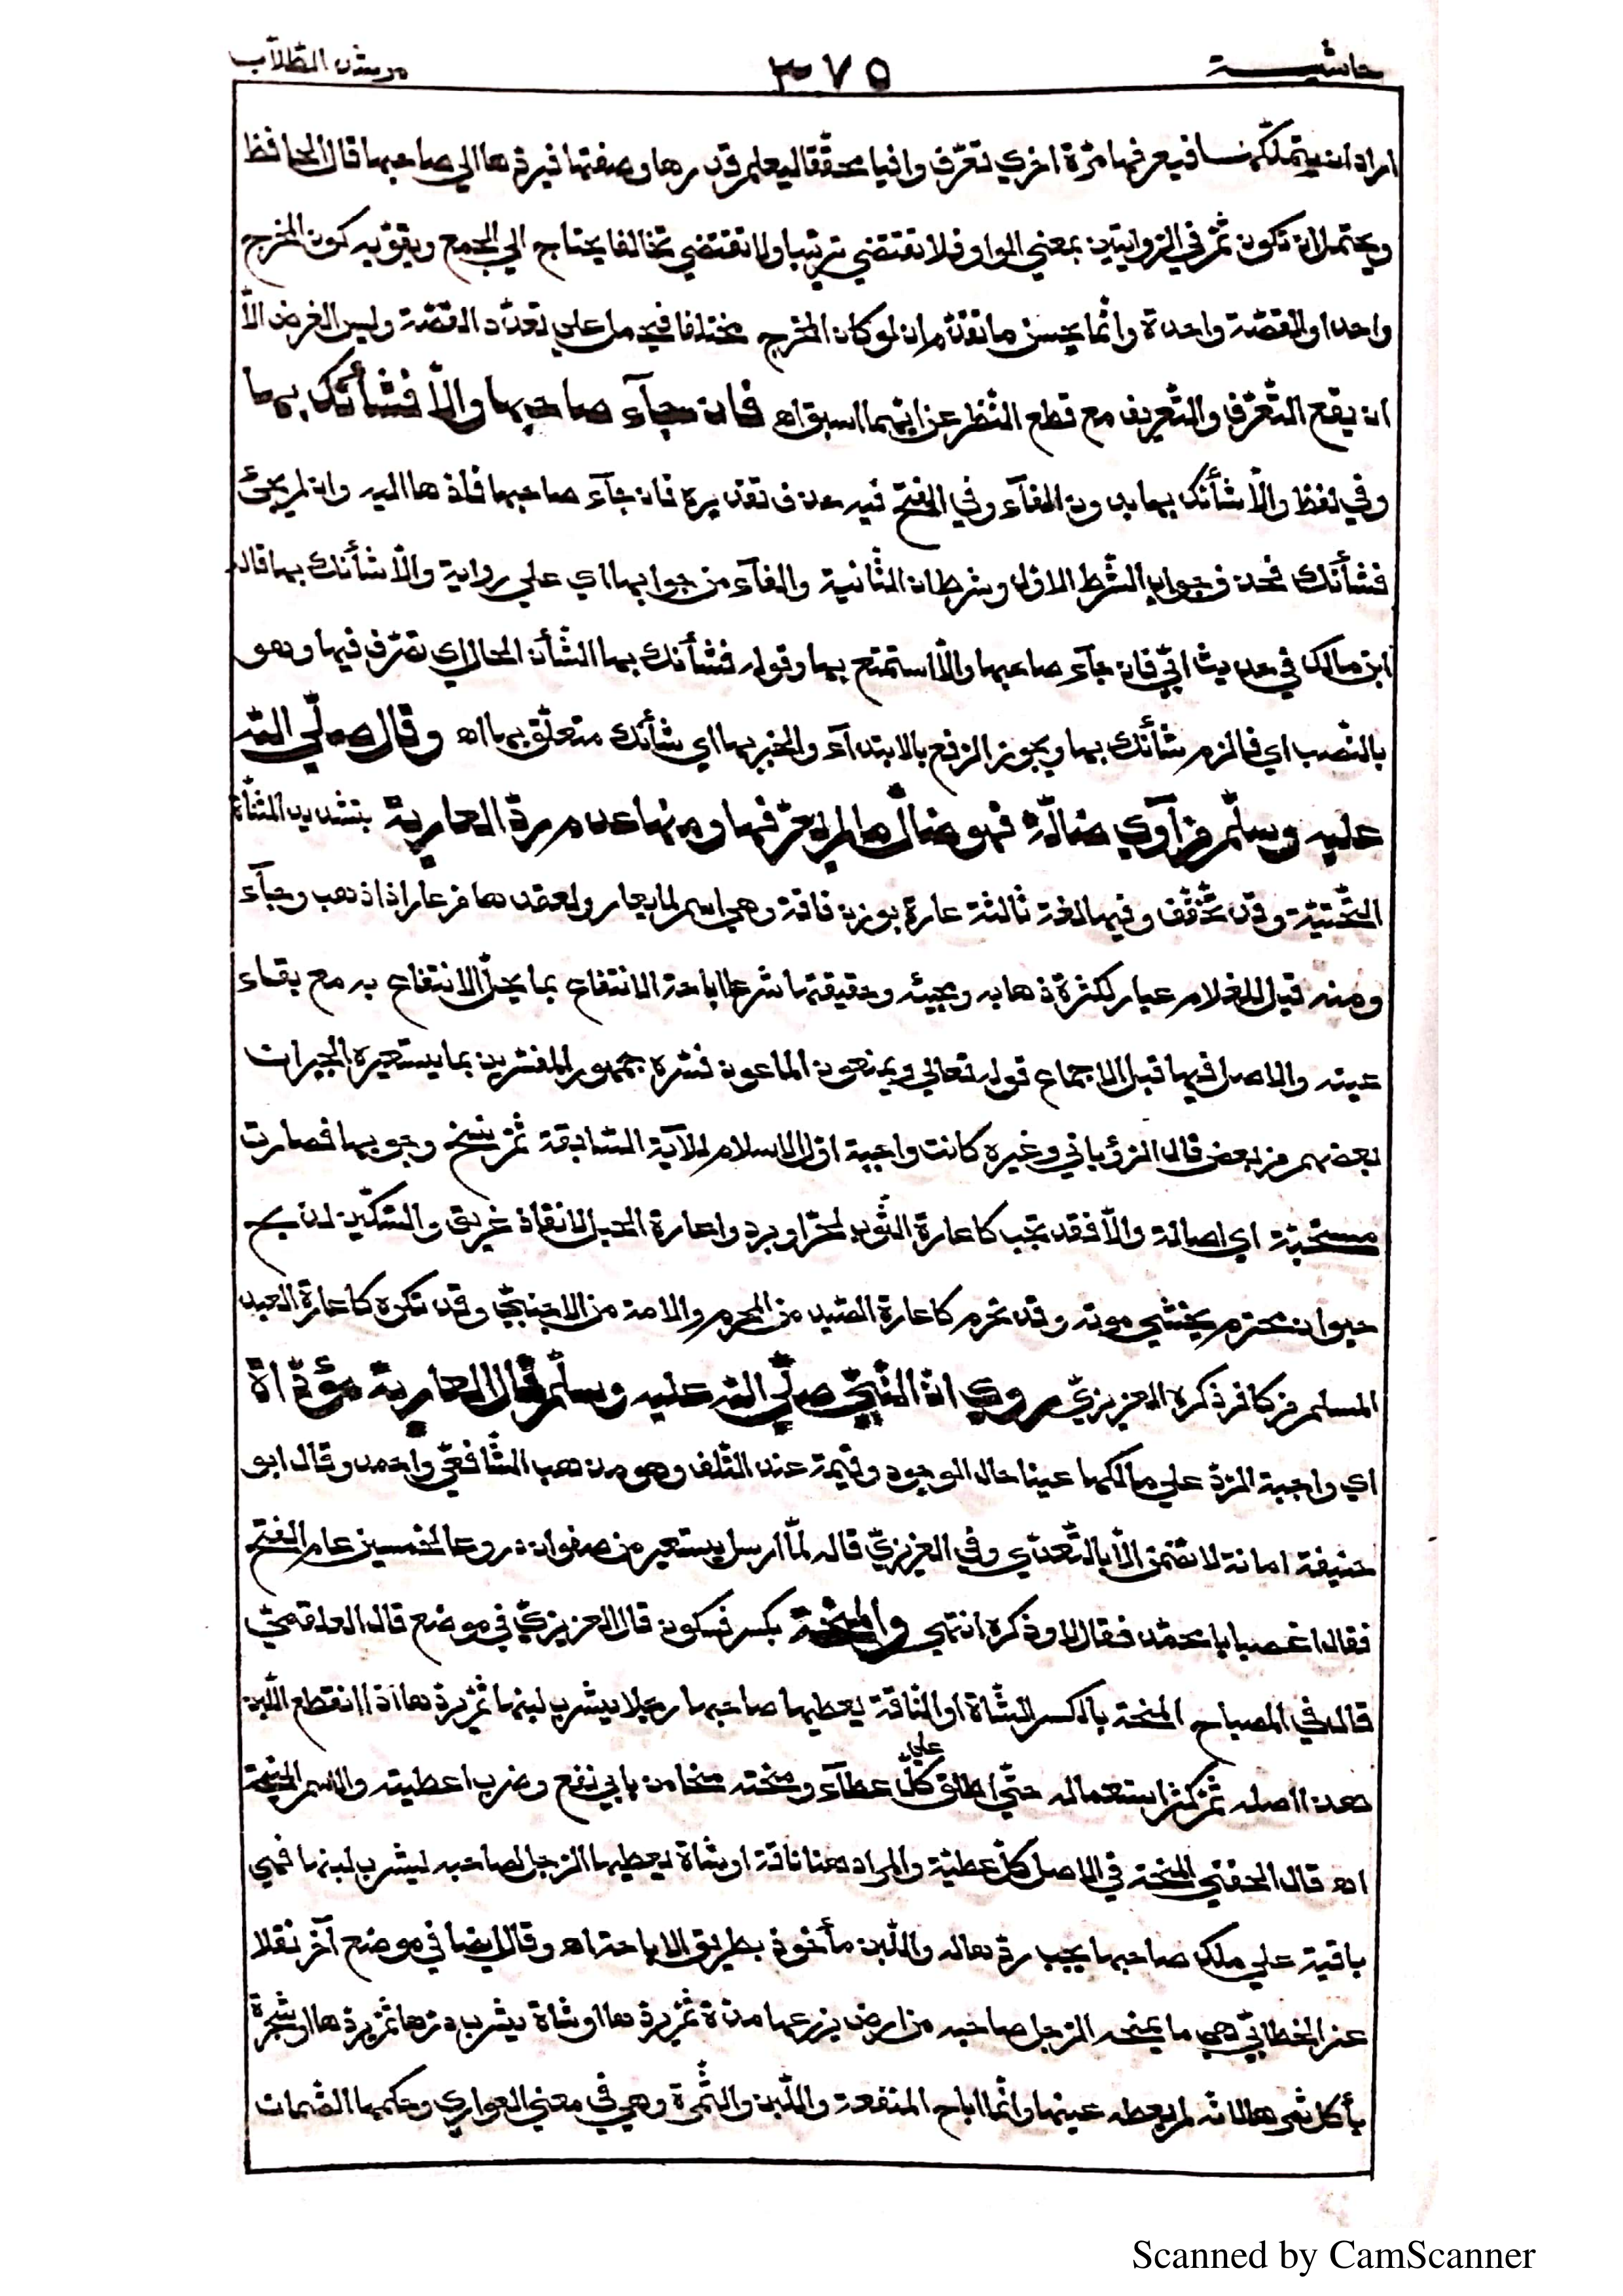 حاشيــــة
٣٧٥
مرشد الطلاب
اراد ان يتملكها فيعرفها مرّة اخرى تعرّفا وافيا محقّقا ليعلم قدرها وصفتها فيردّها الي صاحبها قال الحافظ
ويحتمل ان تكون ثمّ في الرّوايتين بمعني الواو فلا تقتضي ترتيبا ولا تقتضي تخالفا يحتاج الي الجمع ويقوّيه كون المخرج
واحدا والقصّة واحدة وانّما يحسن ما تقدّم ان لو كان المخرج مختلفا فيحمل علي تعدّد القصّة وليس الغرض الّا
ان يقع التّعرّف والتّعريف مع قطع النّظر عن ايّهما اسبق اه فان جآء صاحبها والّا فشأنك بها
وفي لفظ والّا شأنك بها بدون الفآء وفي الفتح فيه حذف تقديره فان جآء صاحبها فادّها اليه وان لم يجئ
فشأنك فحذف جواب الشّرط الاوّل وشرط ان الثّانية والفآء من جوابها اي علي رواية والّا شأنك بها قاله
ابن مالك في حديث ابيّ فان جآء صاحبها والّا استمتع بها وقوله فشأنك بها الشّأن الحال اي تصرّف فيها وهو
بالنّصب اي فالزم شأنك بها ويجوز الرّفع بالابتدآء والخبر بها اي شأنك متعلّق بها اه وقال صلّي اللّه
عليه وسلّم من آوي ضالّة فهو ضالّ ما لم يعرّفها ومنها عدم ردّ العاريّة بتشديد المثنّاة
التّحتيّة وقد تخفّف وفيها لغة ثالثة عارة بوزن ناقة وهي اسم لما يعار ولعقدها من عار اذا ذهب وجآء
ومنه قيل للغلام عيار لكثرة ذهابه ومجيئه وحقيقتها شرعا اباحة الانتفاع بما يحلّ الانتفاع به مع بقاء
عينه والاصل فيها قبل الاجماع قوله تعالي ويمنعون الماعون فسّره جمهور المفسّرين بما يستعيره الجيران
بعضهم من بعض قال الرّوياني وغيره كانت واجبة اوّل الاسلام للآية السّابقة ثمّ نسخ وجوبها فصارت
مستحبّة اي اصالة والّا فقد تجب كاعارة الثّوب لحرّ او برد واعارة الحبل لانقاذ غريق والسّكّين لذبح
حيوان محترم يخشي موته وقد تحرم كاعارة الصّيد من المحرم والامة من الاجنبيّ وقد تكره كاعارة العبد
المسلم من كافر ذكره العزيزيّ روي انّ النّبيّ صلّي اللّه عليه وسلّم قال العاريّة مؤدّاة
اي واجبة الرّدّ علي مالكها عينا حال الوجود وقيمة عند التّلف وهو مذهب الشّافعيّ واحمد وقال ابو
حنيفة امانة لا تضمن الّا بالتّعدّي وفي العزيزيّ قاله لمّا ارسل يستعير من صفوان دروعا لخمسين عام الفتح
فقال اغصبا يا محمّد فقال لا وذكره انتهي والمنحة بكسر فسكون قال العزيزيّ في موضع قال العلقميّ
قال في المصباح المنحة بالكسر الشّاة او النّاقة يعطيها صاحبها رجلا يشرب لبنها ثمّ يردّها اذا انقطع اللّبن
هذا اصله ثمّ كثر استعماله حتّي اطلق علي كلّ عطآء ومنحته منحا من بابي نفع وضرب اعطيته والاسم المنيحة
اه قال الحفني المنحة في الاصل كلّ عطيّة والمراد هنا ناقة او شاة يعطيها الرّجل لصاحبه ليشرب لبنها فهي
باقية علي ملك صاحبها يجب ردّها له واللّبن مأخوذ بطريق الاباحة اه وقال ايضا في موضع آخر نقلا
عن الخطابيّ هي ما يمنحه الرّجل صاحبه من ارض يزرعها مدّة ثمّ يردّها او شاة يشرب درّها ثمّ يردّها او شجرة
يأكل ثمرها لانّه لم يعطه عينها وانّما اباح المنفعة واللّبن والثّمرة وهي في معني العواري وحكمها الضّمان
Scanned by CamScanner